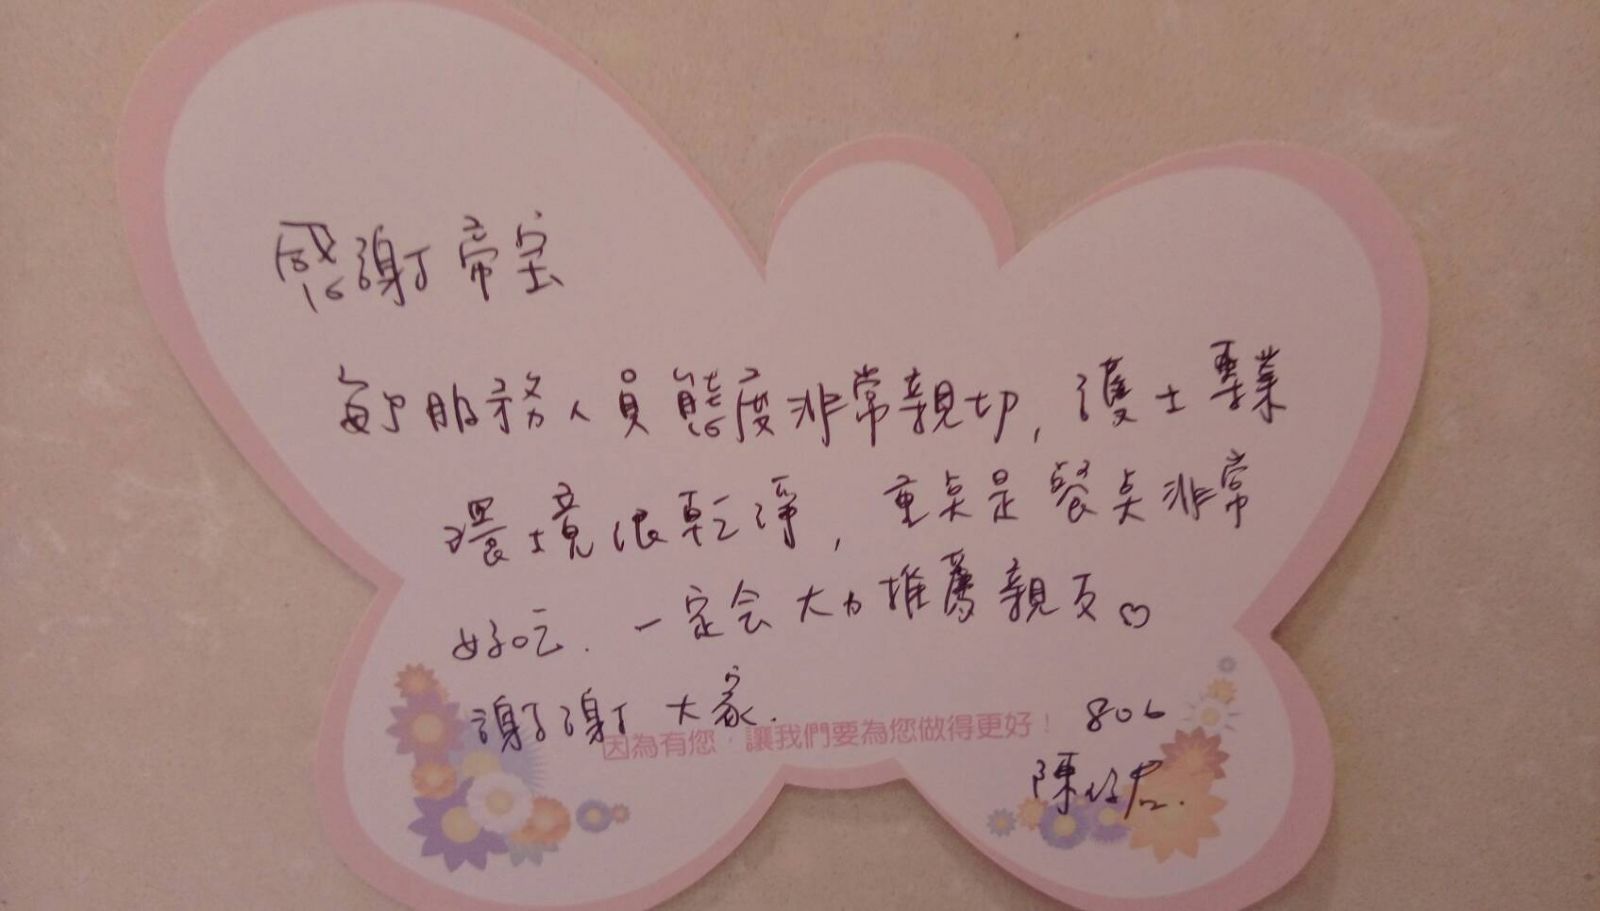 感謝帝宝
每位服務人員態度非常親切，護士專業
環境很乾淨，重点是餐点非常
好吃．一定会大力推薦親友♡
謝謝大家．
因為有您，讓我們要為您做得更好！
806
陳